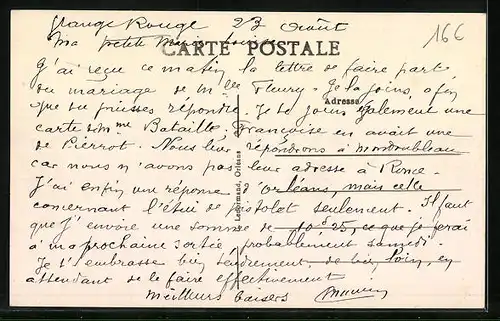 Grange Rouge 23 Août
16C
Ma petite
CARTE POSTALE
J'ai reçu ce matin la lettre de faire part
du mariage de Mlle Fleury - Je la joins, afin
Adresse
que tu puisses répondre. Je te joins également une
carte de Mme Bataille, Françoise en avait une
de Pierrot. Nous leur répondrons à Mondoubleau
car nous n'avons pas leur adresse à Rome.
J'ai enfin une réponse d'Orléans, mais celle
concernant l'étui de pistolet seulement. Il faut
que j'envoie une somme de 10 25, ce que je ferai
à ma prochaine sortie, probablement samedi.
Je t'embrasse bien tendrement, de bien loin, en
attendant de le faire effectivement
Meilleurs baisers
Orléans